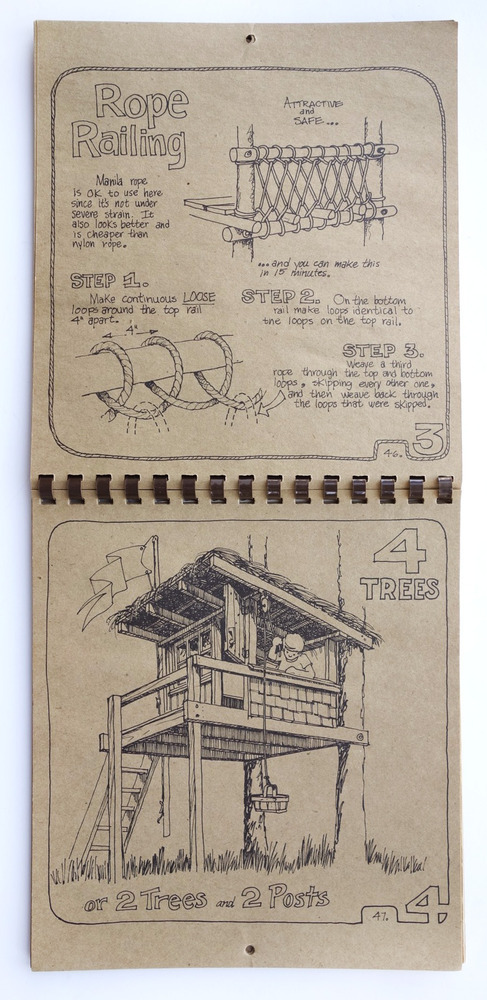 Rope
Railing
ATTRACTIVE
and
SAFE...
Manila rope
is OK to use here
since it's not under
severe strain. It
also looks better and
is cheaper than
nylon rope.
...and you can make this
in 15 minutes.
STEP 1.
Make continuous LOOSE
loops around the top rail
4" apart.
4"
STEP 2. On the bottom
rail make loops identical to
the loops on the top rail.
STEP 3.
Weave a third
rope through the top and bottom
loops, skipping every other one,
and then weave back through
the loops that were skipped.
46. 3
4
TREES
or 2 Trees and 2 Posts
47. 4